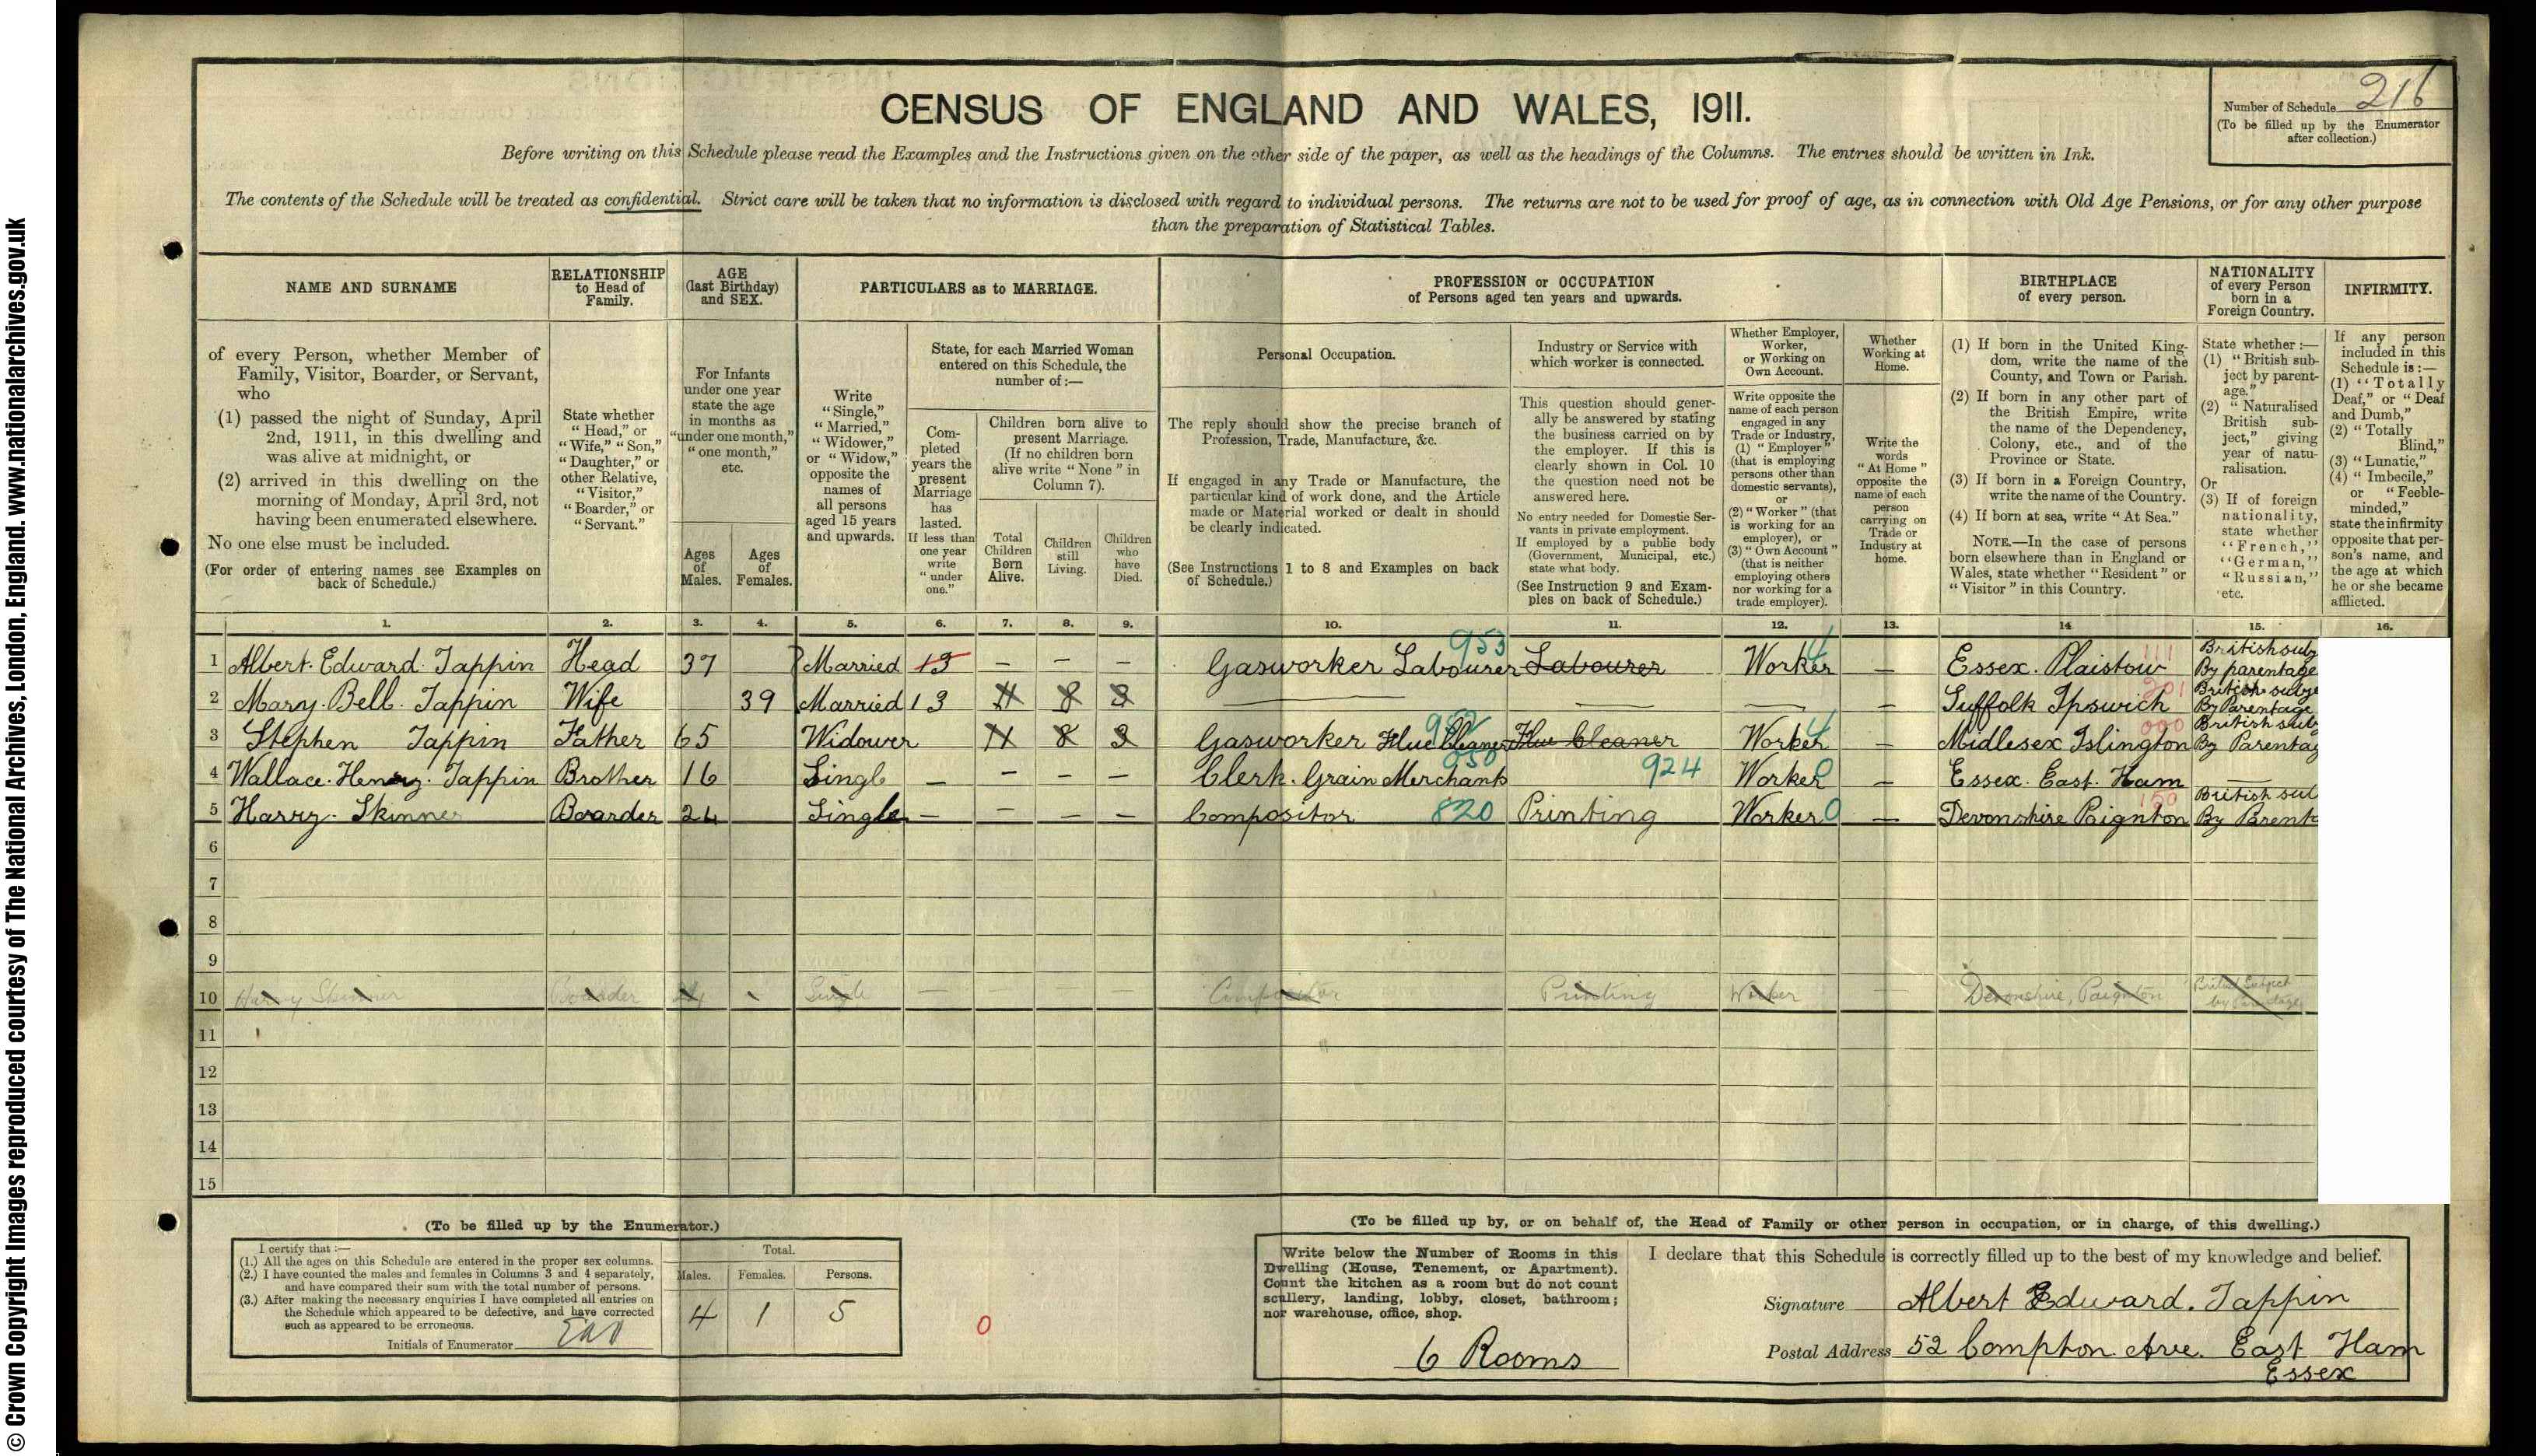 © Crown Copyright Images reproduced courtesy of The National Archives, London, England. www.nationalarchives.gov.uk
CENSUS OF ENGLAND AND WALES, 1911.
Number of Schedule 216
(To be filled up by the Enumerator
after collection.)
Before writing on this Schedule please read the Examples and the Instructions given on the other side of the paper, as well as the headings of the Columns. The entries should be written in Ink.
The contents of the Schedule will be treated as confidential. Strict care will be taken that no information is disclosed with regard to individual persons. The returns are not to be used for proof of age, as in connection with Old Age Pensions, or for any other purpose
than the preparation of Statistical Tables.
NAME AND SURNAME
of every Person, whether Member of
Family, Visitor, Boarder, or Servant,
who
(1) passed the night of Sunday, April
2nd, 1911, in this dwelling and
was alive at midnight, or
(2) arrived in this dwelling on the
morning of Monday, April 3rd, not
having been enumerated elsewhere.
No one else must be included.
(For order of entering names see Examples on
back of Schedule.)
RELATIONSHIP
to Head of
Family.
State whether
"Head," or
"Wife," "Son,"
"Daughter," or
other Relative,
"Visitor,"
"Boarder," or
"Servant."
AGE
(last Birthday)
and SEX.
For Infants
under one year
state the age
in months as
"under one month,"
"one month,"
etc.
Ages
of
Males.
Ages
of
Females.
PARTICULARS as to MARRIAGE.
Write
"Single,"
"Married,"
"Widower,"
or "Widow,"
opposite the
names of
all persons
aged 15 years
and upwards.
State, for each Married Woman
entered on this Schedule, the
number of:—
Com-
pleted
years the
present
Marriage
has
lasted.
If less than
one year
write
"under
one."
Children born alive to
present Marriage.
(If no children born
alive write "None" in
Column 7).
Total
Children
Born
Alive.
Children
still
Living.
Children
who
have
Died.
PROFESSION or OCCUPATION
of Persons aged ten years and upwards.
Personal Occupation.
The reply should show the precise branch of
Profession, Trade, Manufacture, &c.
If engaged in any Trade or Manufacture, the
particular kind of work done, and the Article
made or Material worked or dealt in should
be clearly indicated.
(See Instructions 1 to 8 and Examples on back
of Schedule.)
Industry or Service with
which worker is connected.
This question should gener-
ally be answered by stating
the business carried on by
the employer. If this is
clearly shown in Col. 10
the question need not be
answered here.
No entry needed for Domestic Ser-
vants in private employment.
If employed by a public body
(Government, Municipal, etc.)
state what body.
(See Instruction 9 and Exam-
ples on back of Schedule.)
Whether Employer,
Worker,
or Working on
Own Account.
Write opposite the
name of each person
engaged in any
Trade or Industry,
(1) "Employer"
(that is employing
persons other than
domestic servants),
or
(2) "Worker" (that
is working for an
employer), or
(3) "Own Account"
(that is neither
employing others
nor working for a
trade employer).
Whether
Working at
Home.
Write the
words
"At Home"
opposite the
name of each
person
carrying on
Trade or
Industry at
home.
BIRTHPLACE
of every person.
(1) If born in the United King-
dom, write the name of the
County, and Town or Parish.
(2) If born in any other part of
the British Empire, write
the name of the Dependency,
Colony, etc., and of the
Province or State.
(3) If born in a Foreign Country,
write the name of the Country.
(4) If born at sea, write "At Sea."
NOTE.—In the case of persons
born elsewhere than in England or
Wales, state whether "Resident" or
"Visitor" in this Country.
NATIONALITY
of every Person
born in a
Foreign Country.
State whether :—
(1) "British sub-
ject by parent-
age."
(2) "Naturalised
British sub-
ject," giving
year of natu-
ralisation.
Or
(3) If of foreign
nationality,
state whether
"French,"
"German,"
"Russian,"
etc.
INFIRMITY.
If any person
included in this
Schedule is :—
(1) "Totally
Deaf," or "Deaf
and Dumb,"
(2) "Totally
Blind,"
(3) "Lunatic,"
(4) "Imbecile,"
or "Feeble-
minded,"
state the infirmity
opposite that per-
son's name, and
the age at which
he or she became
afflicted.
1. 2. 3. 4. 5. 6. 7. 8. 9. 10. 11. 12. 13. 14 15. 16.
1 Albert Edward Tappin Head 37 Married 13 — — — Gasworker Labourer 953 Labourer Worker 4 — Essex. Plaistow 111 British subj By parentage
2 Mary. Bell. Tappin Wife 39 Married 13 11 8 3 — — — Suffolk Ipswich 201 British subje By Parentage
3 Stephen Tappin Father 65 Widower 11 8 3 Gasworker Flue Cleaner Flue Cleaner Worker 4 — Midlesex Islington 000 British subj By Parentag
4 Wallace. Henry. Tappin Brother 16 Singl — — — — Clerk. Grain Merchants 050 924 Worker 0 — Essex. East. Ham —
5 Harry. Skinner Boarder 24 Single — — — — Compositor 820 Printing Worker 0 — Devonshire Paignton 150 British sub By Parent
6
7
8
9
10 Harry Skinner Boarder 24 - Single — — — — Compositor Printing Worker — Devonshire, Paignton British Subject by Parentage
11
12
13
14
15
(To be filled up by the Enumerator.)
I certify that :—
(1.) All the ages on this Schedule are entered in the proper sex columns.
(2.) I have counted the males and females in Columns 3 and 4 separately,
and have compared their sum with the total number of persons.
(3.) After making the necessary enquiries I have completed all entries on
the Schedule which appeared to be defective, and have corrected
such as appeared to be erroneous.
Initials of Enumerator
Total.
Males. Females. Persons.
4 1 5
0
(To be filled up by, or on behalf of, the Head of Family or other person in occupation, or in charge, of this dwelling.)
Write below the Number of Rooms in this
Dwelling (House, Tenement, or Apartment).
Count the kitchen as a room but do not count
scullery, landing, lobby, closet, bathroom;
nor warehouse, office, shop.
6 Rooms
I declare that this Schedule is correctly filled up to the best of my knowledge and belief.
Signature Albert Edward. Tappin
Postal Address 52 Compton Ave. East Ham
Essex